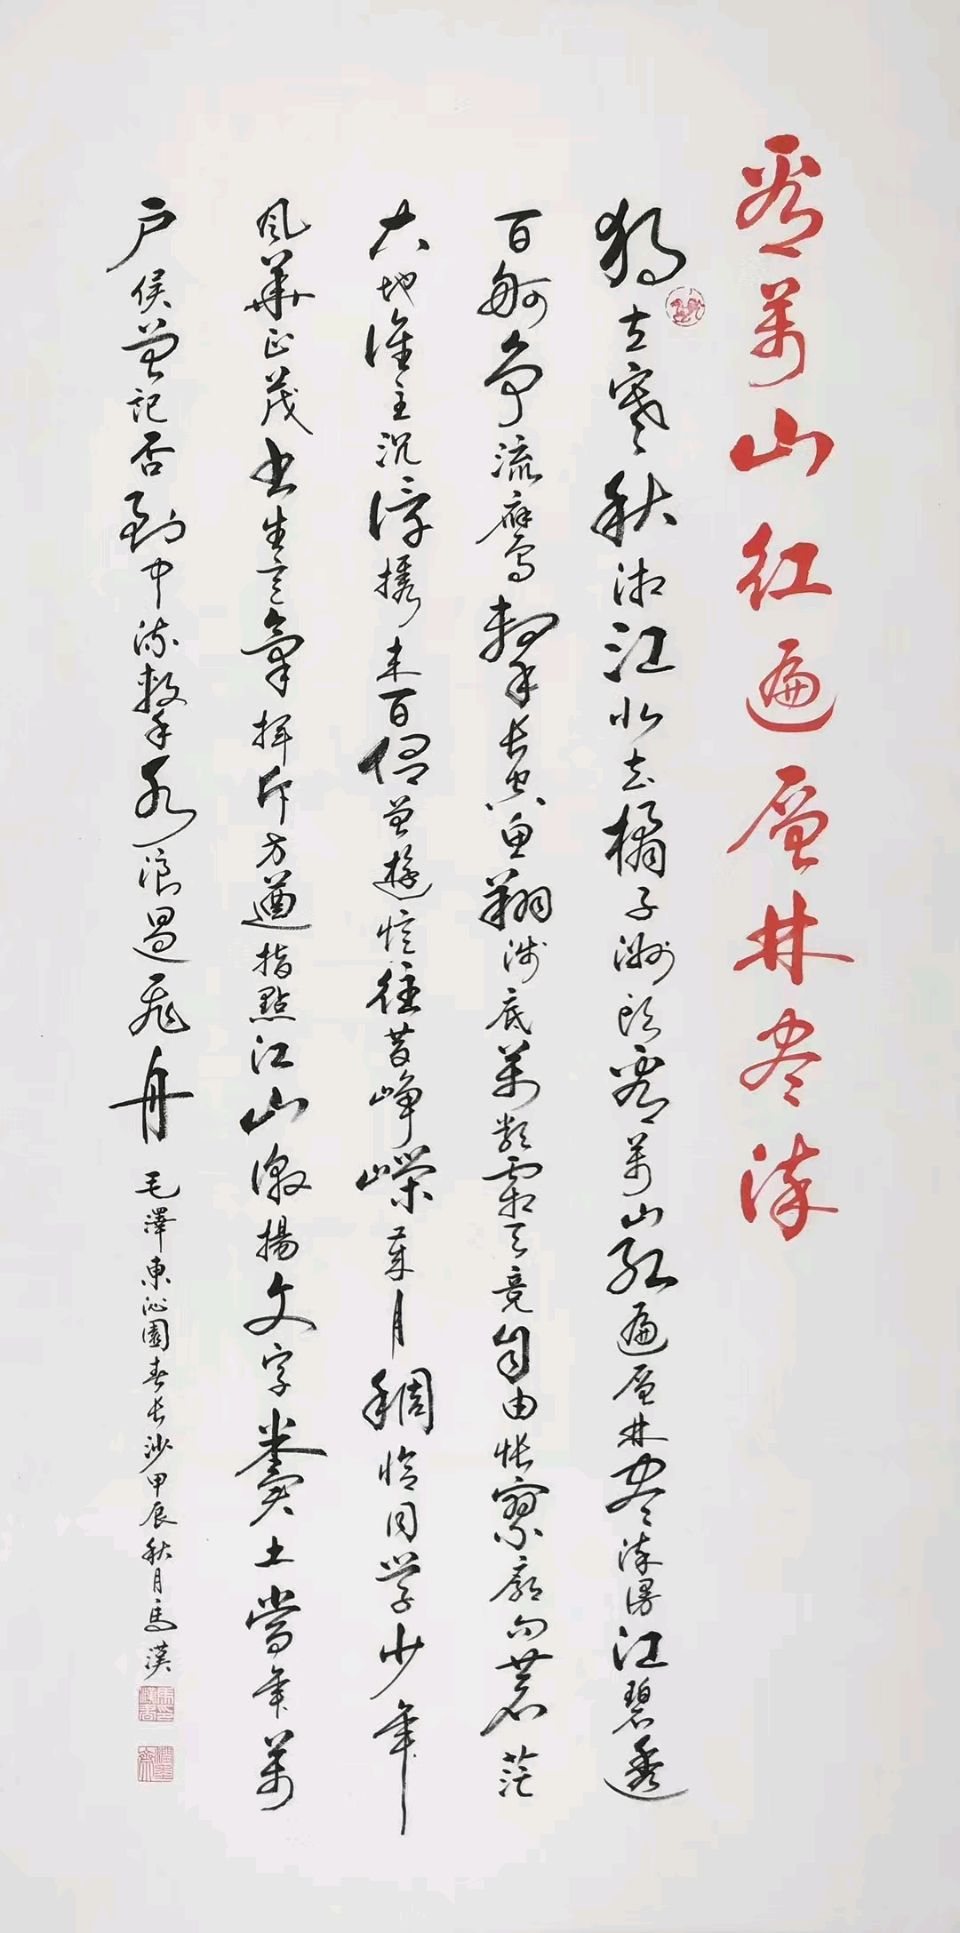 看萬山红遍層林尽染
独立寒秋湘江北去橘子洲頭看萬山红遍層林尽染漫江碧透
百舸争流鷹擊長空魚翔浅底萬類霜天競自由悵寥廓问蒼茫
大地谁主沉浮攜来百侣曾遊憶往昔峥嵘歲月稠恰同学少年
風華正茂书生意氣揮斥方遒指點江山激揚文字糞土當年萬
户侯曾記否到中流擊水浪遏飛舟 毛澤東沁園春長沙甲辰秋月馬漢